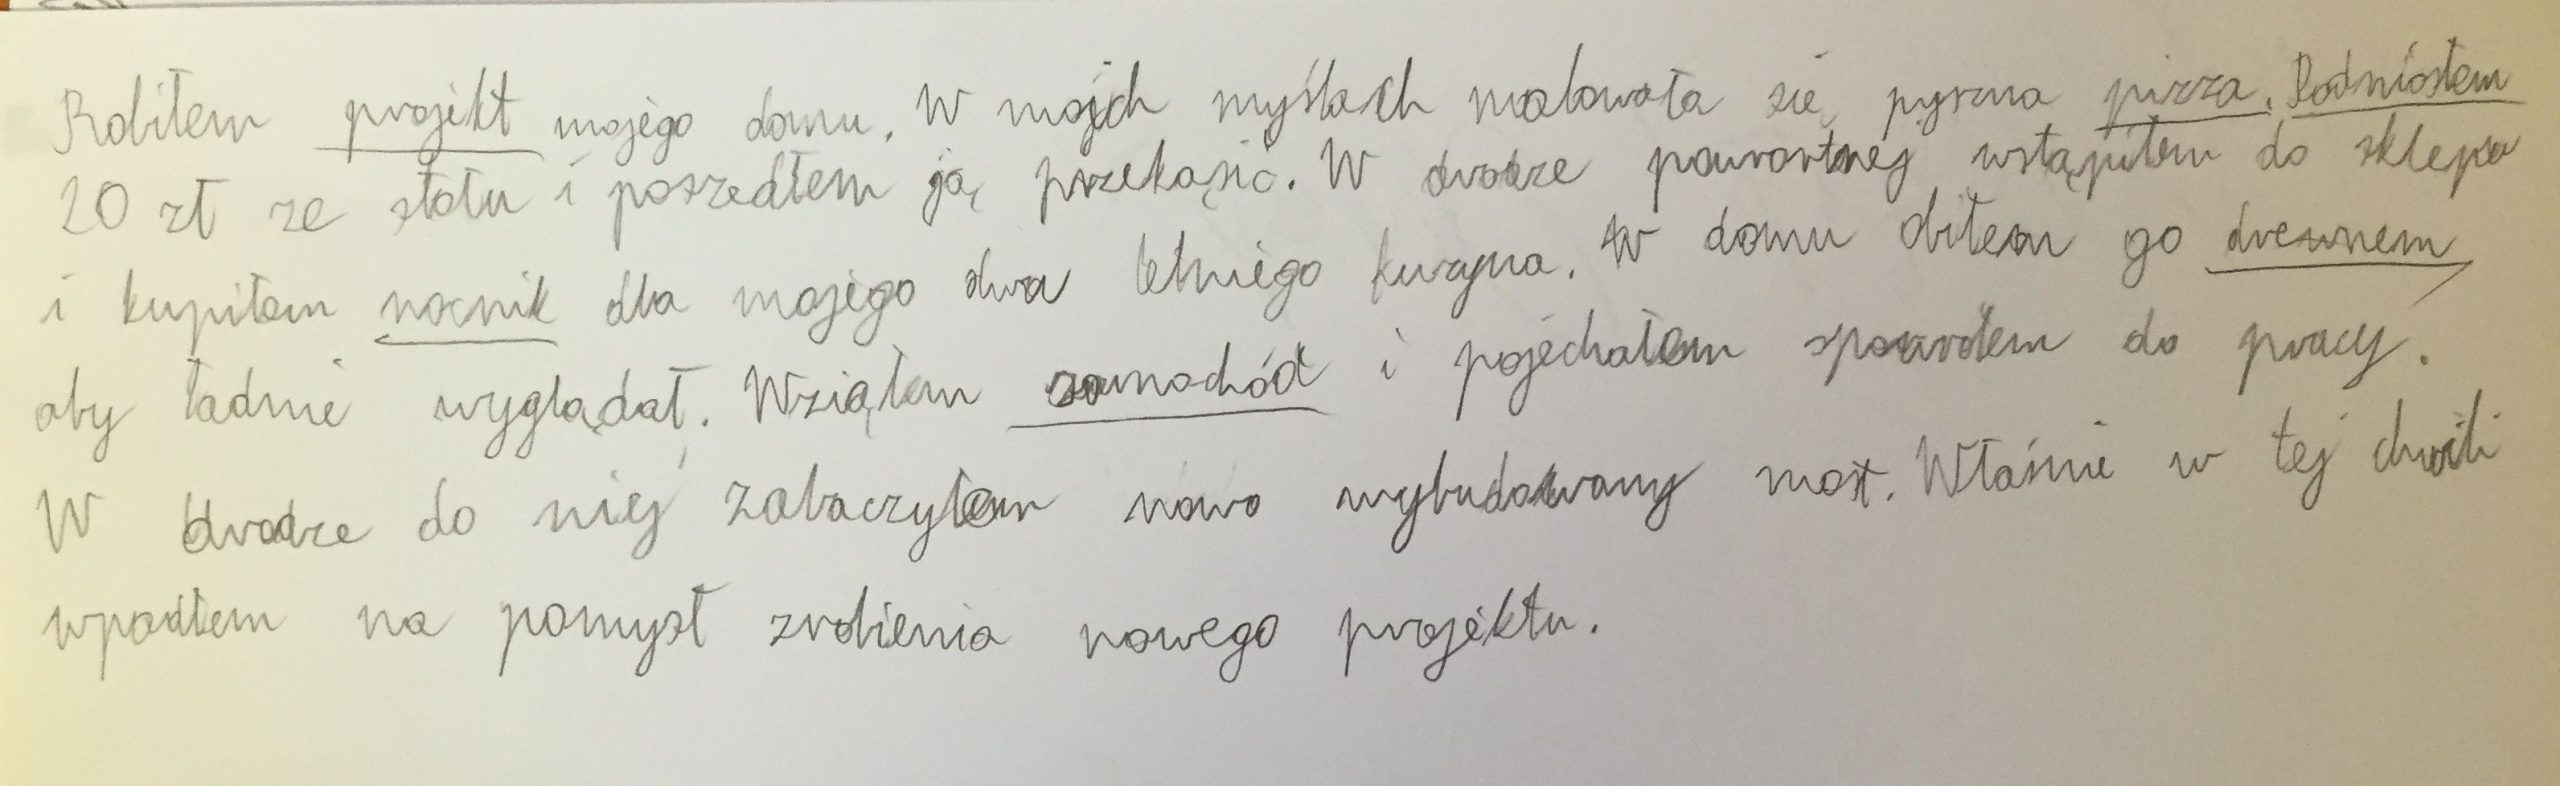 Robiłem projekt mojego domu. W mojich myślach malowała się pyszna pizza. Podniosłem
20 zł ze stołu i poszedłem ją przekąsić. W drodze powrotnej wstąpiłem do sklepu
i kupiłem nocnik dla mojego dwa letniego kuzyna. W domu obiłem go drewnem
aby ładnie wyglądał. Wziąłem samochód i pojechałem spowrotem do pracy.
W drodze do niej zobaczyłem nowo wybudowany most. Właśnie w tej chwili
wpadłem na pomysł zrobienia nowego projektu.